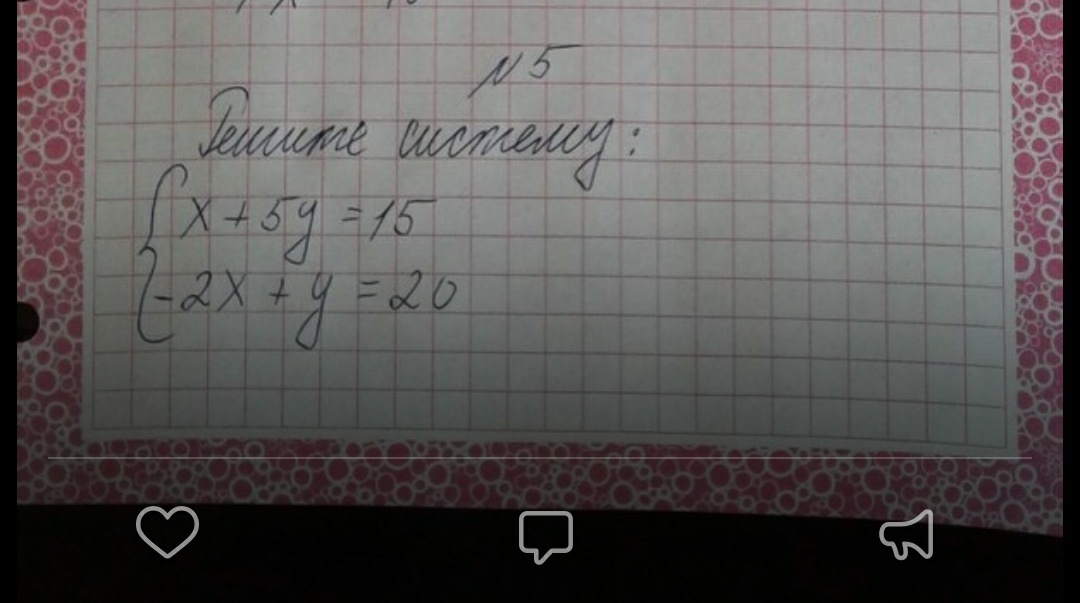 N 5
Решите систему:
x + 5y = 15
-2x + y = 20